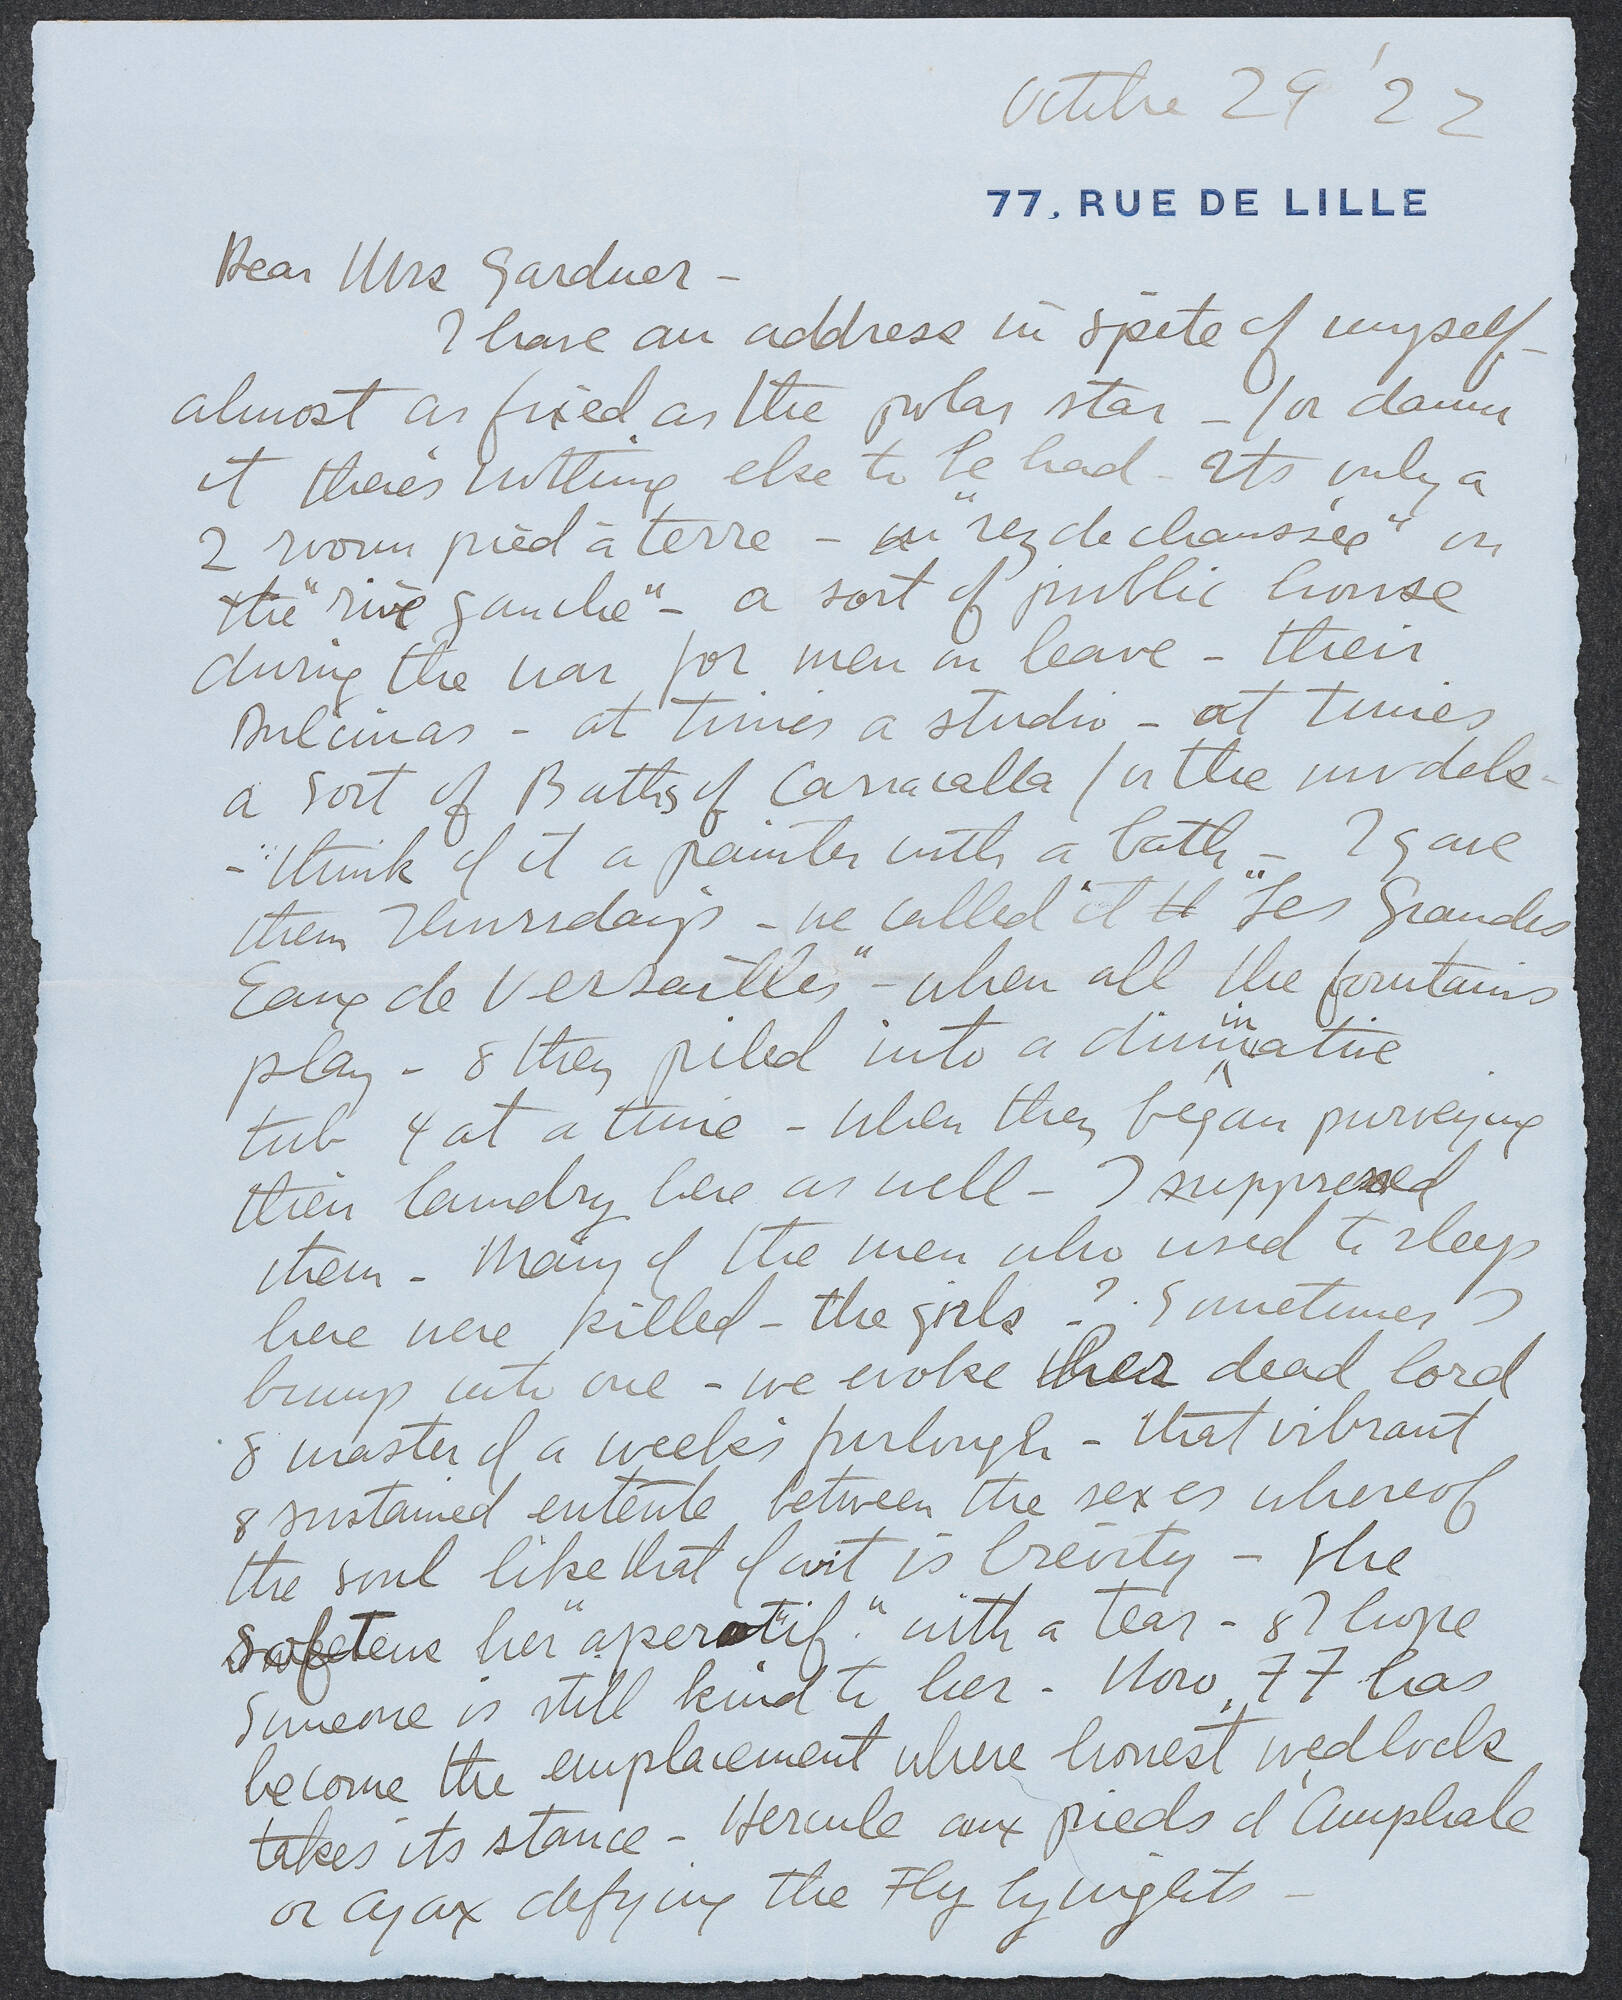 Octobre 29 '22
77, RUE DE LILLE
Dear Mrs Gardner -
I have an address in spite of myself -
almost as fixed as the polar star - for damn
it there's nothing else to be had - Its only a
2 room pied à terre - "rez de chaussée" on
the "rive gauche" - a sort of public house
during the war for men on leave - their
Dulcinas - at times a studio - at times
a sort of Baths of Carracalla for the models -
- think of it a painter with a bath - I gave
them Thursdays - we called it "Les Grandes
Eaux de Versailles" - when all the fountains
play - & they piled into a diminative
tub 4 at a time - when they began purveying
their laundry here as well - I suppressed
them - Many of the men who used to sleep
here were killed - the girls - ? Sometimes I
bump into one - we evoke her dead lord
& master of a week's furlough - that vibrant
& sustained entente between the sexes whereof
the soul like that of wit is brevity - she
softens her "aperatif" with a tear - & I hope
someone is still kind to her - Now, 77 has
become the emplacement where honest wedlock
takes its stance - Hercule aux pieds d'Amphale
or Ajax defying the Fly by nights -